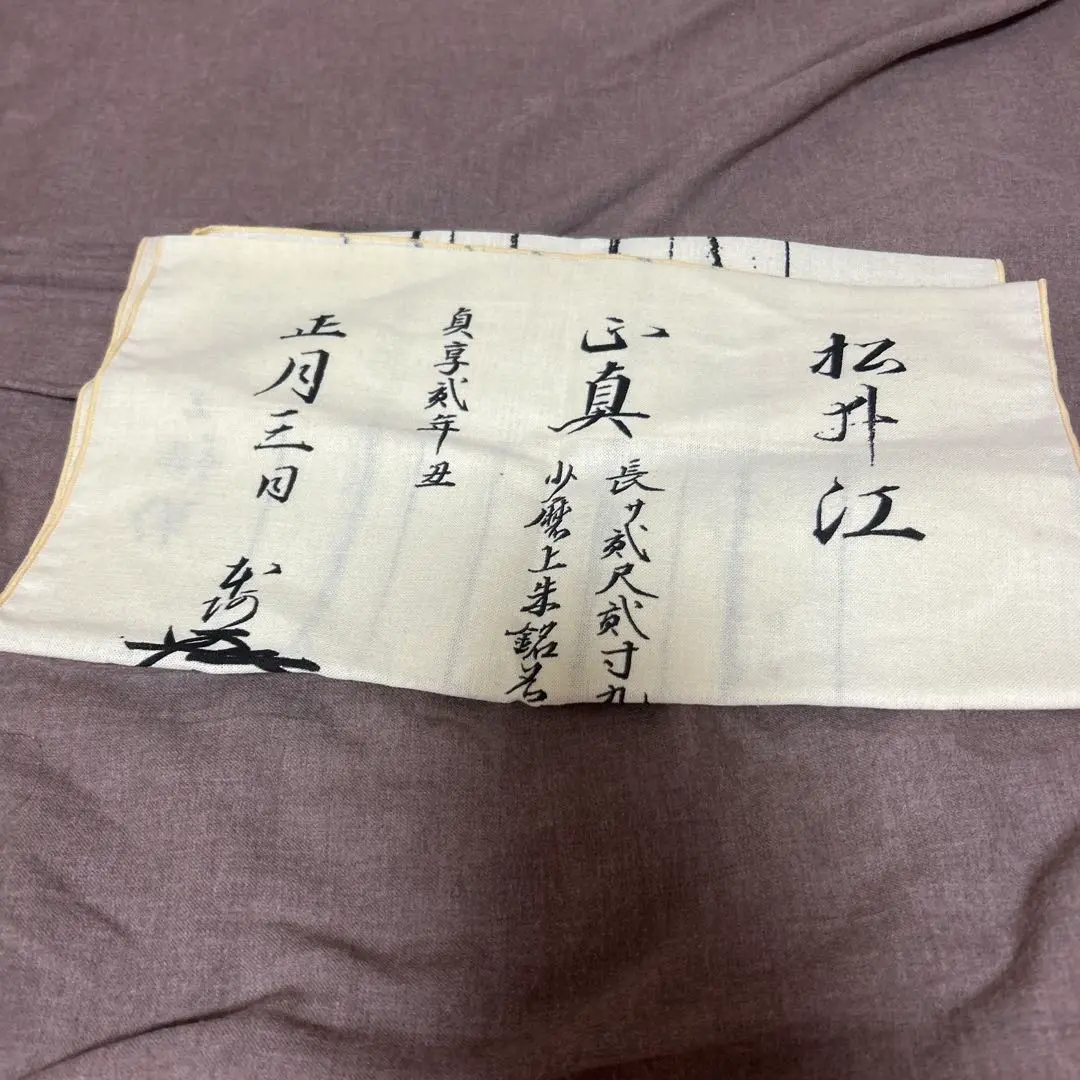 松井江
正真
長サ貳尺貳寸九
少磨上朱銘
貞享貳年丑
正月三日